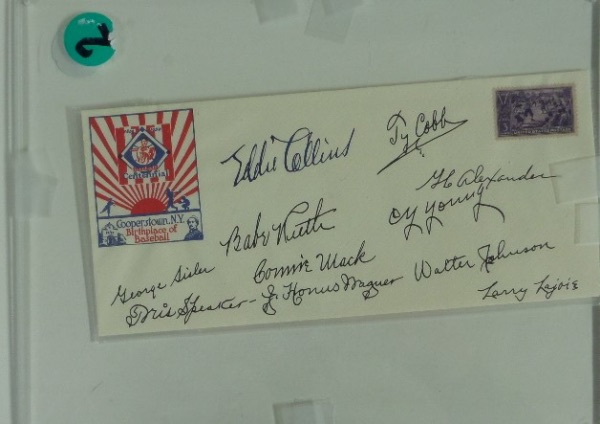 2
Centennial
Cooperstown, N.Y.
Birthplace of
Baseball
Eddie Collins
Ty Cobb
G C Alexander
Cy Young
Babe Ruth
Connie Mack
Walter Johnson
George Sisler
Tris Speaker - J. Honus Wagner
Larry Lajoie